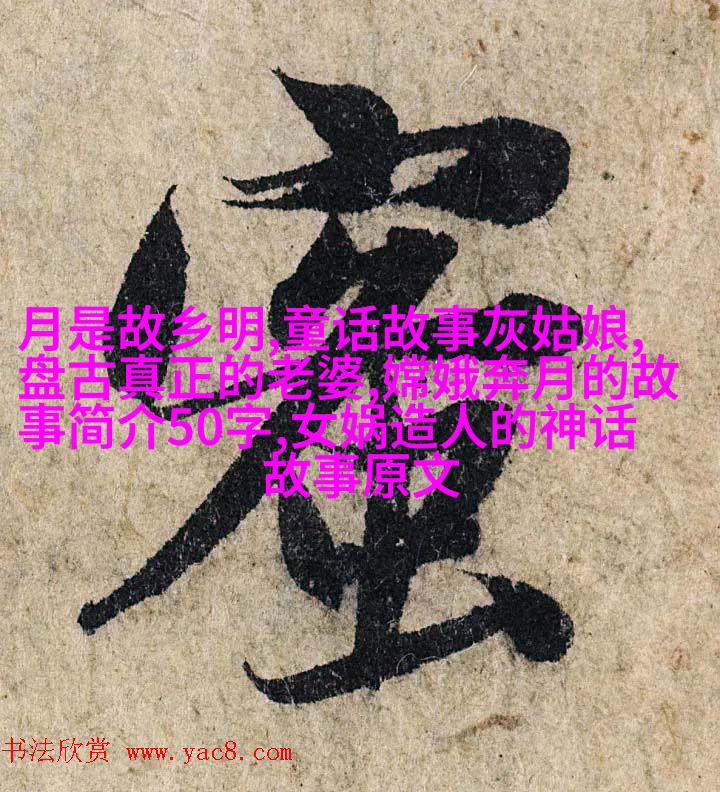 月是故乡明,童话故事灰姑娘,
盘古真正的老婆,嫦娥奔月的故
事简介50字,女娲造人的神话
故事原文
书法欣赏 www.yac8.com